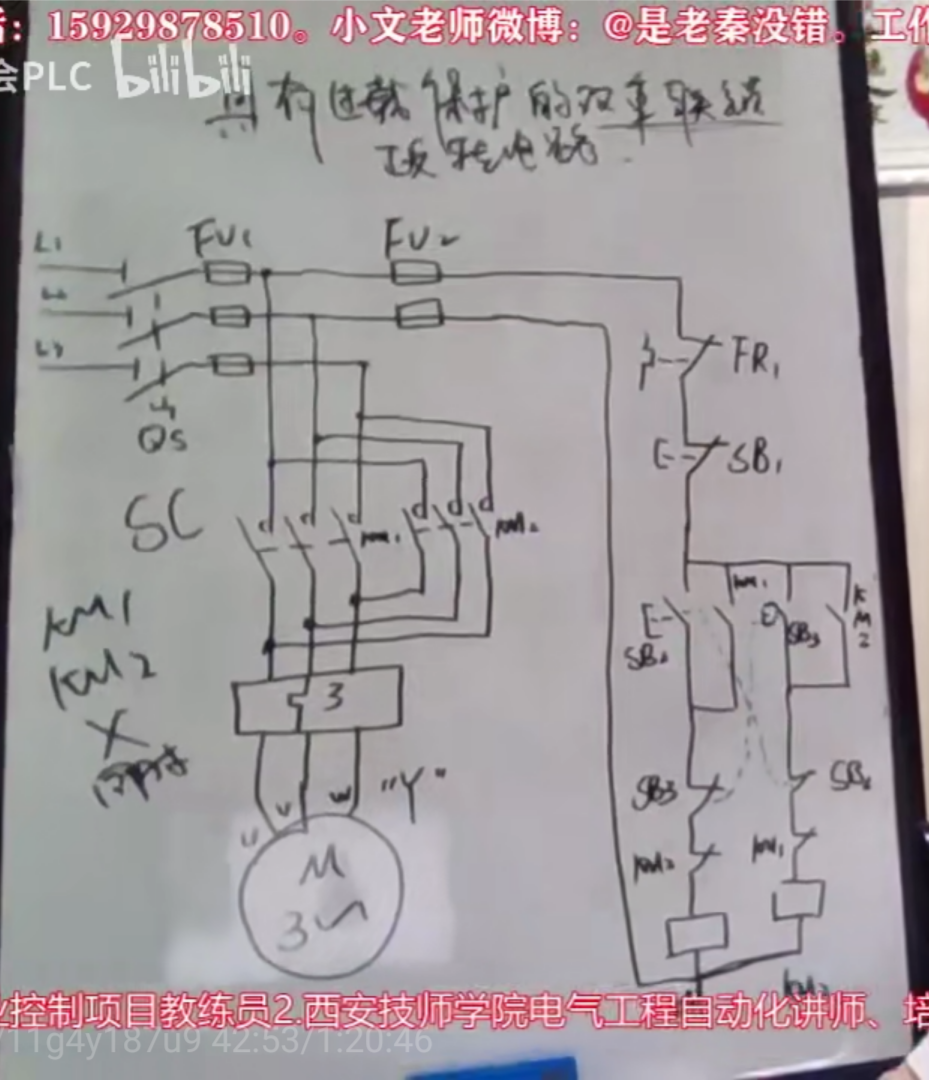 ：15929878510。小文老师微博：@是老秦没错。工作
会PLC bilibili
具有过载保护的双重联锁
正反转电路
L1
FU1
FU2
L2
L3
QS
FR1
SB1
SC
KM1
KM2
KM1
KM2
X
同时
KM1
SB2
SB3
KM2
3
U
V
W
"Y"
SB3
SB2
KM2
KM1
M
3~
KM2
业控制项目教练员2.西安技师学院电气工程自动化讲师、培
11g4y187u9 42:53/1:20:46